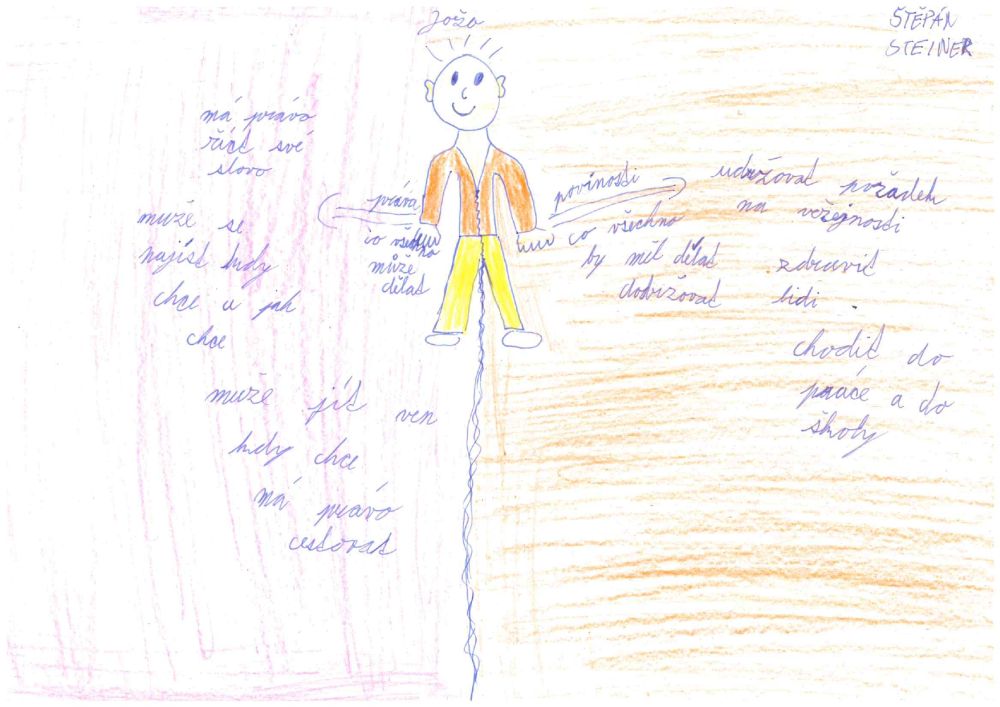 Joža
ŠTĚPÁN
STEINER
má právo
říct své
slovo
muže se
najíst kdy
chce a jak
chce
muže jít ven
kdy chce
má právo
cestovat
práva
co všechno
může
dělat
povinosti
co všechno
by měl dělat
dodržovat
udržovat pořádek
na veřejnosti
zdravit
lidi
chodit do
práce a do
školy